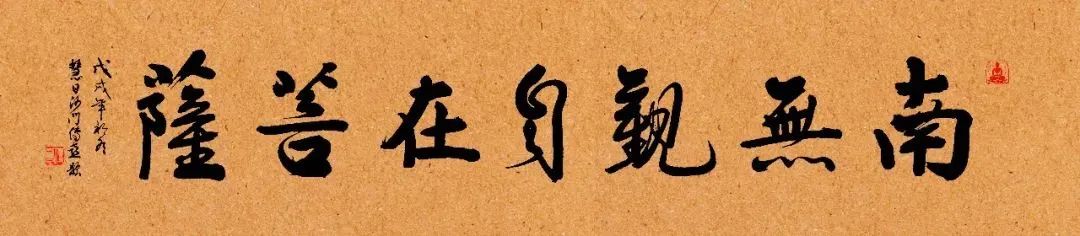 南無觀自在菩薩
戊戌年
慧日沙門題